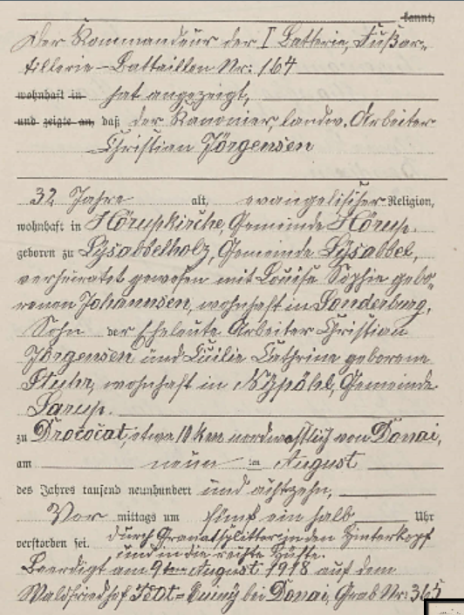 kannt,
Der Kommandeur der I Batterie, Fußar-
tillerie-Battaillon Nr: 164
wohnhaft in hat angezeigt,
und zeigte an, daß der Kanonier, landw. Arbeiter
Christian Jörgensen
32 Jahre alt, evangelischer Religion,
wohnhaft in Hörupkirche, Gemeinde Hörup,
geboren zu Lysabbelholz, Gemeinde Lysabbel,
verheiratet gewesen mit Louise Sophie gebo-
renen Johannsen, wohnhaft in Sonderburg,
Sohn der Eheleute Arbeiter Christian
Jörgensen und Cathrine geborene
wohnhaft in Gemeinde
zu etwa 10 km nordwestlich von Douai,
am neun ten August
des Jahres tausend neunhundert und achtzehn,
Vor mittags um fünf ein halb Uhr
verstorben sei. durch Granatsplitter in den Hinterkopf
und in die rechte Hüfte.
Beerdigt am 9ten August 1918 auf dem
Waldfriedhof bei Douai, Grab Nr: 365